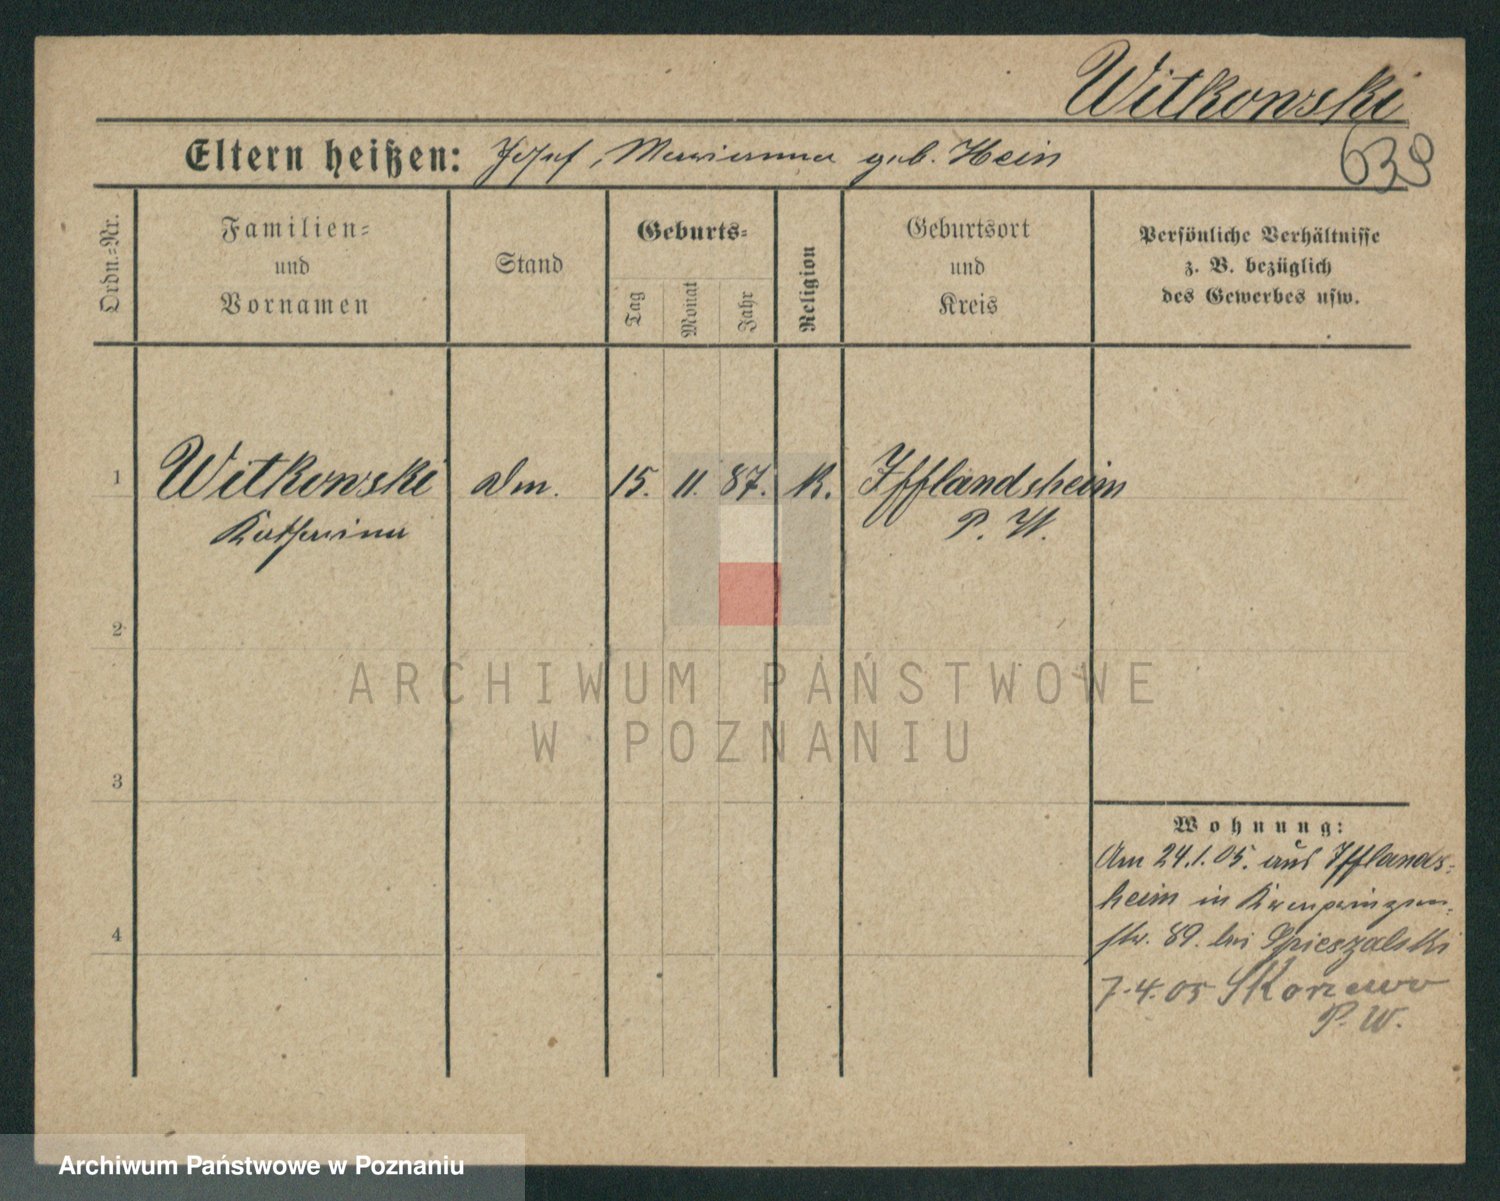 Witkowski
639
Eltern heißen: Josef, Marianna geb. Hein
Ordn.-Nr.
Familien-
und
Vornamen
Stand
Geburts-
Tag
Monat
Jahr
Religion
Geburtsort
und
Kreis
Persönliche Verhältnisse
z. B. bezüglich
des Gewerbes usw.
1 Witkowski 15. 11. 87. K. Ifflandsheim
Katharina P. W.
2
ARCHIWUM PAŃSTWOWE
W POZNANIU
3
Wohnung:
Am 24.1.05. aus Ifflands-
heim in Kronprinzen-
4
str. 89. bei Spieszalski
7.4.05 Skorzewo
P. W.
Archiwum Państwowe w Poznaniu